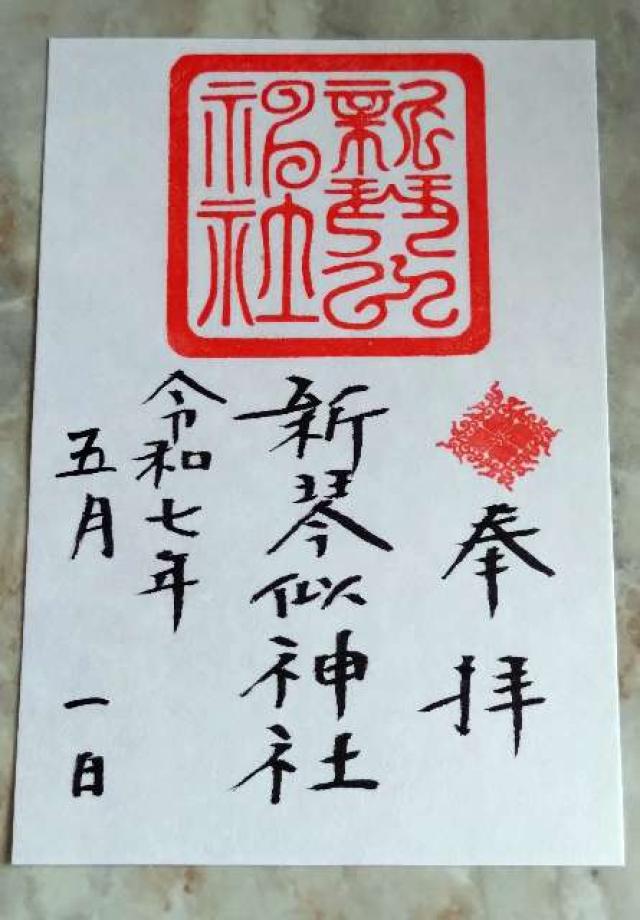 新琴似
神社
奉拝
新琴似神社
令和七年
五月 一日